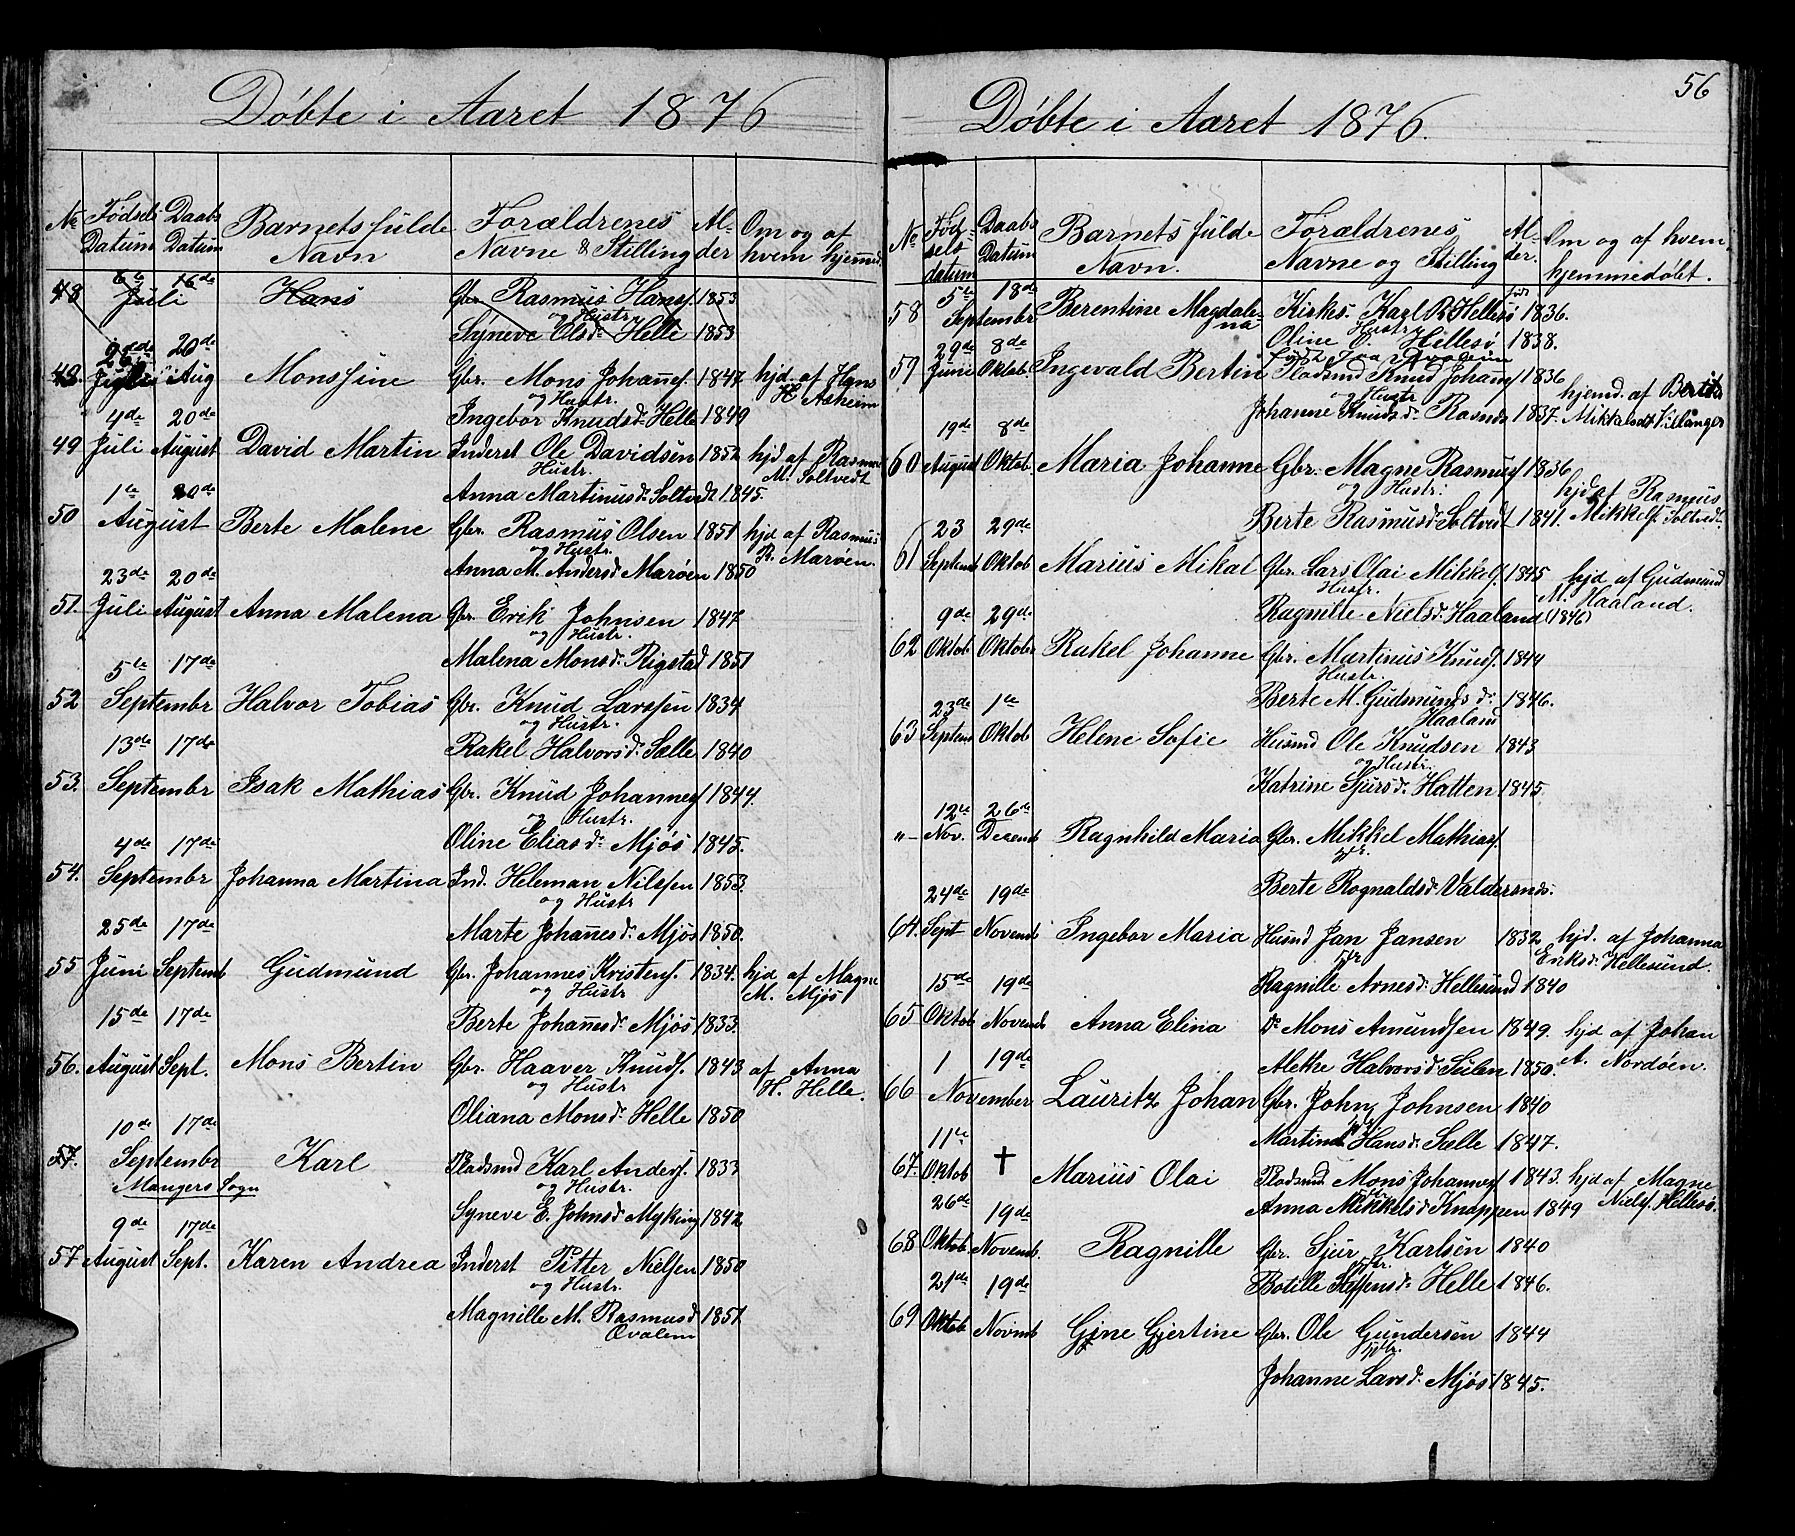 Døbte i Aaret 1876
No Fødsels Datum Daabs Datum Barnets fulde Navn Forældrenes Navne & Stilling Alder Om og af hvem hjemmed.
48 Juli 16de Hans Gbr. Rasmus Hanss. 1853
og Hustr
Syneve Olsdr. Helle 1853
48. 20de Aug Monssine Gbr. Mons Johannes. 1847 hjd af Hans
og Hustr. H. Askeim
Ingebor Knudsdr. Helle 1849
49 4de Juli 20de August David Martin Inderst Ole Davidsen 1852 hjd af Rasmus
Hustr. M. Soltvedt
Anna Martinusdr. Soltvedt 1845.
50 1te 20de August Berte Malene Gbr. Rasmus Olsen 1851 hjd af Rasmus
og Hustr. R. Marøen.
Anna M. Andersdr Marøen 1850
51. 23de Juli 20de August Anna Malena Gbr. Erik Johnsen 1847
og Hustr.
Malena Monsdr. Rigstad 1851
52 5te 17de Septembr Halvor Tobias Gbr. Knud Larssen 1834
og Hustr.
Rakel Halvorsdr. Sælle 1840
53. 13de 17de Septembr Isak Mathias Gbr. Knud Johannes 1844.
og Hustr.
Oline Eliasdr. Mjøs 1845.
54. 4de 17de Septembr Johanna Martina Ind. Heleman Nilssen 1853.
og Hustr
Marte Johannesdr. Mjøs 1850.
55 25de Juni 17de Septemb Gudmund Gbr. Johannes Kristens. 1834. hjd af Magne
og Hustr M. Mjøs
Berte Johannesdr. Mjøs 1833.
56. 15de August 17de Sept. Mons Bertin Gbr. Haaver Knuds. 1843 af Anna
og Hustr H. Helle.
Oliana Monsdr. Helle 1850
57. 10de 17de Septembr Karl Pladsmd Karl Anders. 1833
Mangers Sogn og Hustr.
Syneve E. Johnsdr Myking 1842
57 9de August 17de Sept. Karen Andrea Inderst Pitter Nielsen 1850
og Hustr.
Magnille M. Rasmusd 1851
Qvalem
56
Døbte i Aaret 1876.
No Fødselsdatum Daabs Datum Barnets fulde Navn. Forældrenes Navne og Stilling Alder. Om og af hvem hjemmedøbt.
58 5te 18de September Berentine Magdalena Kirks. Karl R Hellesø født 1836.
Hustr
Oline E. Hillesø 1838.
59 29de Juni 8de Oktob. Ingevald Bertin Pladsmd Knud Johannes 1836 hjemd. af Berite
og Hustr Mikkelsdr Villanger
Johanne Knudsdr. Rasnds 1837.
60 19de August 8de Oktob Maria Johanne Gbr. Magne Rasmus 1836 hjd af Rasmus
og Hustr. Mikkels. Soltvedt.
Berte Rasmusdr. Soltvedt 1841.
61 23 Septemb 29de Oktob Marius Mikal Gbr. Lars Olai Mikkels. 1845 hjd af Gudmund
Hustr. M. Haaland.
Ragnille Nielsdr. Haaland (1846)
62 9de Oktob 29de Oktobr Rakel Johanne Gbr. Martinus Knuds. 1844
Hustr.
Berte M. Gudmundsdr. 1846.
Haaland
63 23de Septem 1te Oktob Helene Sofie Husmd Ole Knudsen 1843
og Hustr.
Katrine Sjursdr. Hatten 1845.
„ 12te Nov. 26de Decemb Ragnhild Maria Gbr. Mikkel Mathias.
Berte Rognaldsdr. Valdersnes.
64. 24de Sept 19de Novemb Ingebor Maria Husmd Jan Jansen 1832 hjd. af Johanna
Eriksdr. Hellesund.
Ragnille Arnesdr. Hellesund 1840
65 15de Oktob 19de Novemb Anna Elina Do Mons Amundsen 1849. hjd af Johan
A. Nordøen.
Alethe Halvorsdr. Sulen 1850.
66 1 19de November Lauritz Johan Gbr. John Johnsen 1840
Martine Hansdr. Sælle 1847.
67. 11te Oktob † Marius Olai Pladsmd. Mons Johannes 1843. hjd af Magne
Anna Mikkelsdr. Knappen 1849 Niels. Hellesø.
68 26de Oktob. 19de Novemb. Ragnille Gbr. Sjur Karlsen 1840
Botille Steffensdr. Helle 1846.
69 21de Oktob 19de Novmb Gjne Gjertine Gbr. Ole Gundersen 1844
Johanne Larsdr. Mjøs 1845.